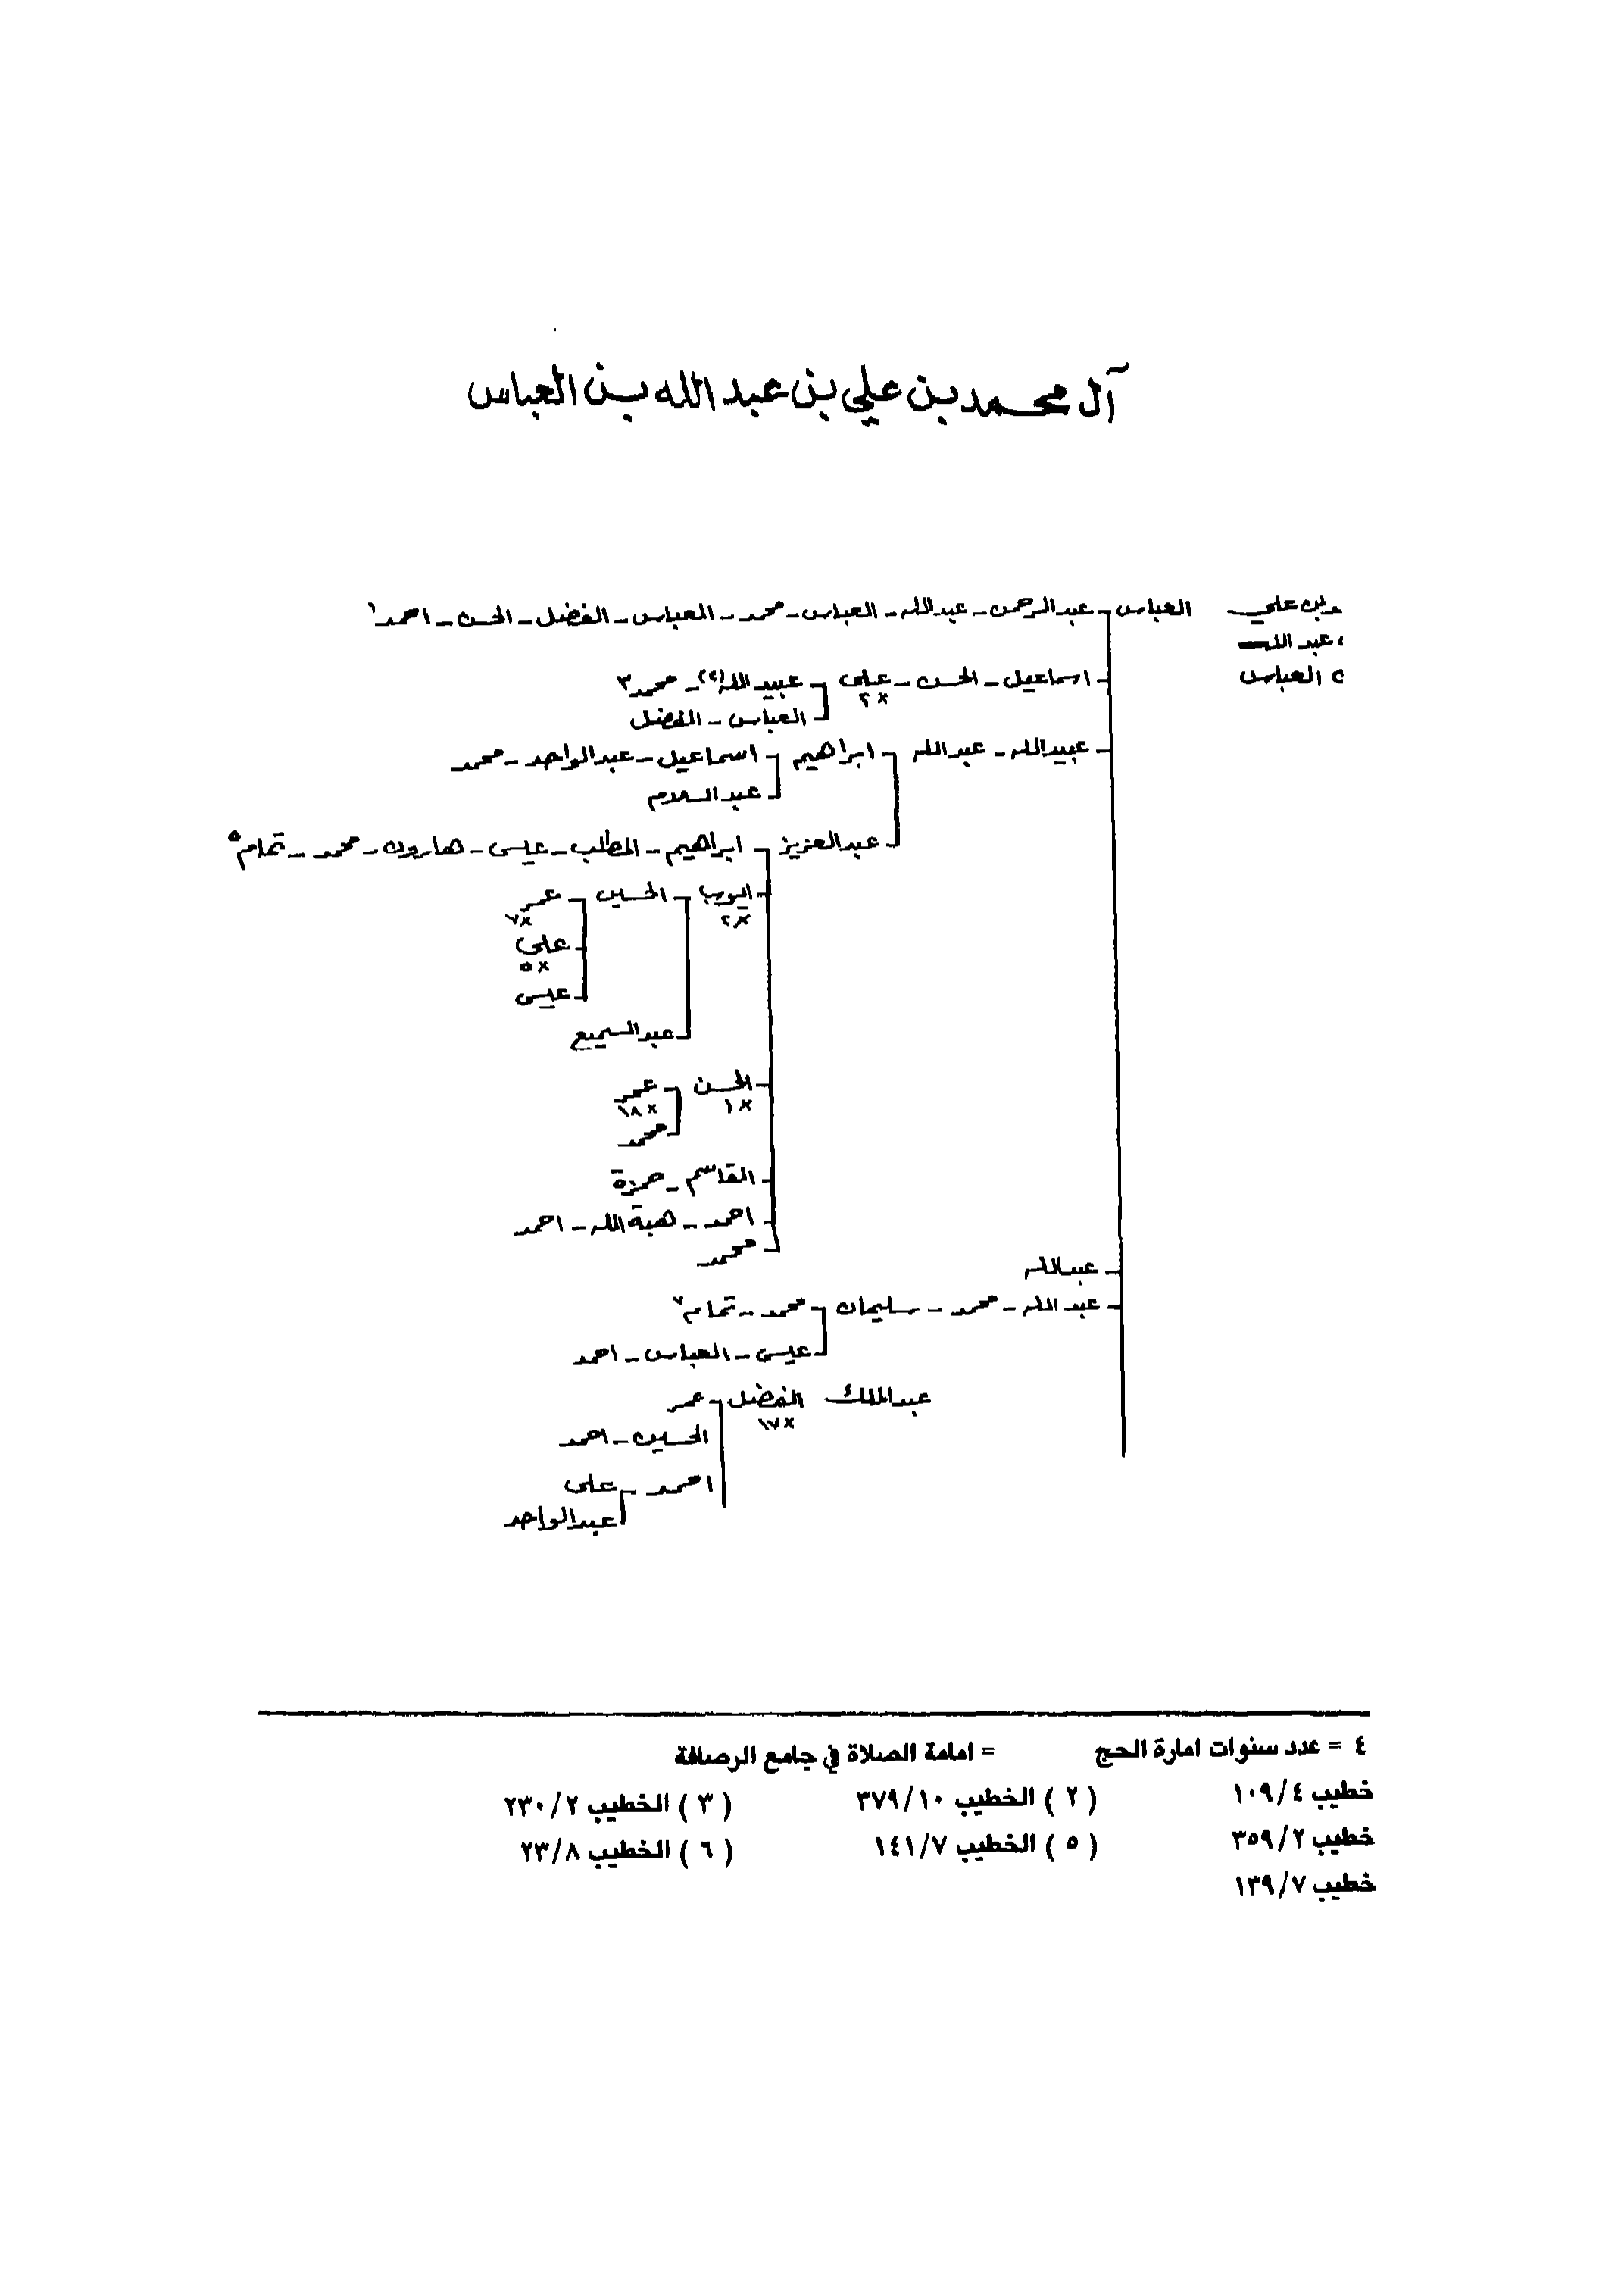 آل محمد بن علي بن عبد الله بن العباس
بن علي العباس - عبدالرحمن - عبدالله - العباس - محمد - العباس - الفضل - الحسن - احمد ١
عبد الله
العباس
اسماعيل - الحسن - علي - عبيدالله (٢) - محمد ٣
٢ ×
العباس - الفضل
عبيدالله - عبدالله - ابراهيم - اسماعيل - عبدالواحد - محمد
عبدالسلام
عبدالعزيز - ابراهيم - المطلب - عيسى - هارون - محمد - تمام ٥
ايوب - الحسين - عمر
× ٢
× ٧
علي
× ٥
عيسى
عبدالسميع
الحسن - عمر
× ١
× ١٨
محمد
القاسم - حمزة
احمد - هبة الله - احمد
محمد
عبدالله
عبد الله - محمد - سليمان - محمد - تمام ٧
عيسى - العباس - احمد
عبدالملك الفضل - عمر
× ١٧
الحسين - احمد
احمد - علي
عبدالواحد
٤ = عدد سنوات امارة الحج = امامة الصلاة في جامع الرصافة
خطيب ١٠٩/٤ ( ٢ ) الخطيب ٣٧٩/١٠ ( ٣ ) الخطيب ٢٣٠/٢
خطيب ٣٥٩/٢ ( ٥ ) الخطيب ١٤١/٧ ( ٦ ) الخطيب ٢٣/٨
خطيب ١٣٩/٧